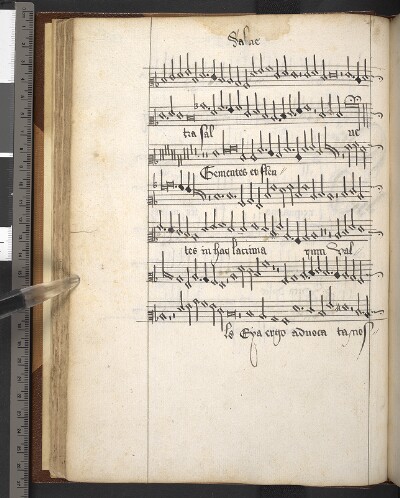 Salue
tra sul ue
Gementes et flen
tes in hac lacrima rum val
le Eya ergo aduoca ta nos